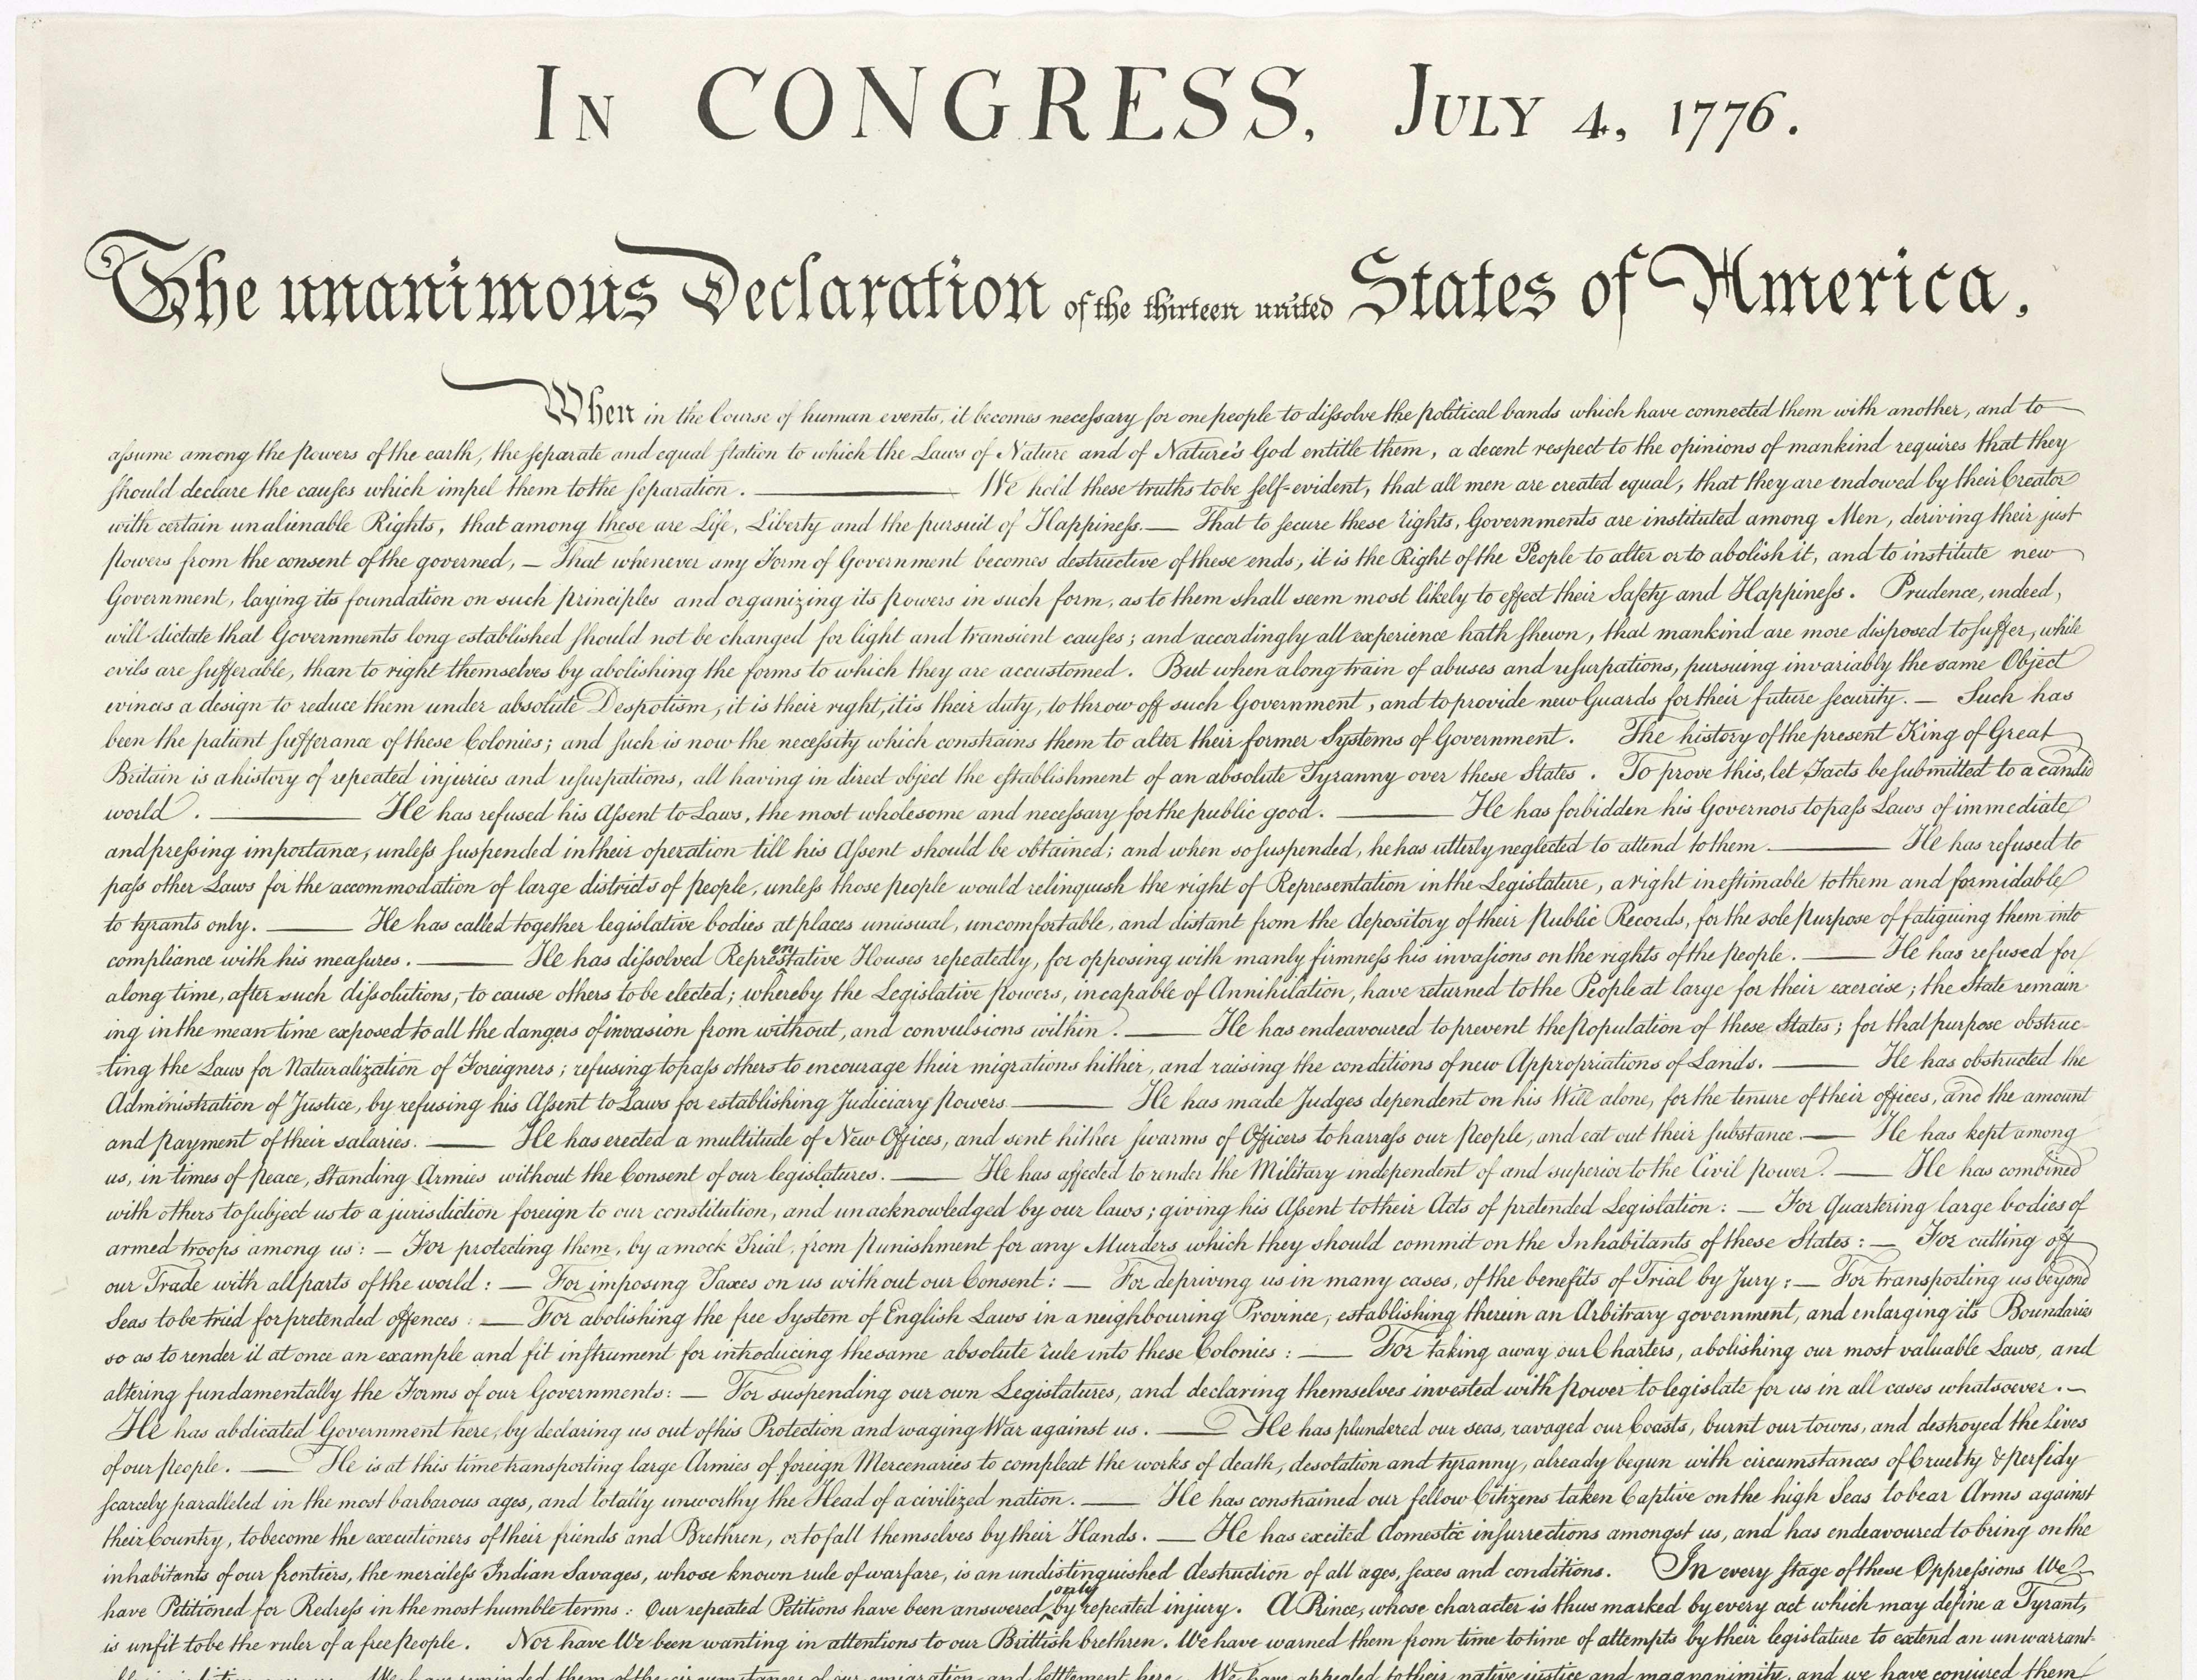 In CONGRESS, July 4, 1776.
The unanimous Declaration of the thirteen united States of America,
When in the Course of human events, it becomes necessary for one people to dissolve the political bands which have connected them with another, and to
assume among the powers of the earth, the separate and equal station to which the Laws of Nature and of Nature's God entitle them, a decent respect to the opinions of mankind requires that they
should declare the causes which impel them to the separation. ——— We hold these truths to be self-evident, that all men are created equal, that they are endowed by their Creator
with certain unalienable Rights, that among these are Life, Liberty and the pursuit of Happiness.— That to secure these rights, Governments are instituted among Men, deriving their just
powers from the consent of the governed, — That whenever any Form of Government becomes destructive of these ends, it is the Right of the People to alter or to abolish it, and to institute new
Government, laying its foundation on such principles and organizing its powers in such form, as to them shall seem most likely to effect their Safety and Happiness. Prudence, indeed,
will dictate that Governments long established should not be changed for light and transient causes; and accordingly all experience hath shewn, that mankind are more disposed to suffer, while
evils are sufferable, than to right themselves by abolishing the forms to which they are accustomed. But when a long train of abuses and usurpations, pursuing invariably the same Object
evinces a design to reduce them under absolute Despotism, it is their right, it is their duty, to throw off such Government, and to provide new Guards for their future security. — Such has
been the patient sufferance of these Colonies; and such is now the necessity which constrains them to alter their former Systems of Government. The history of the present King of Great
Britain is a history of repeated injuries and usurpations, all having in direct object the establishment of an absolute Tyranny over these States. To prove this, let Facts be submitted to a candid
world. ——— He has refused his Assent to Laws, the most wholesome and necessary for the public good. ——— He has forbidden his Governors to pass Laws of immediate
and pressing importance, unless suspended in their operation till his Assent should be obtained; and when so suspended, he has utterly neglected to attend to them. ——— He has refused to
pass other Laws for the accommodation of large districts of people, unless those people would relinquish the right of Representation in the Legislature, a right inestimable to them and formidable
to tyrants only. ——— He has called together legislative bodies at places unusual, uncomfortable, and distant from the depository of their Public Records, for the sole purpose of fatiguing them into
compliance with his measures. ——— He has dissolved Representative Houses repeatedly, for opposing with manly firmness his invasions on the rights of the people. ——— He has refused for
a long time, after such dissolutions, to cause others to be elected; whereby the Legislative powers, incapable of Annihilation, have returned to the People at large for their exercise; the State remain
ing in the mean time exposed to all the dangers of invasion from without, and convulsions within. ——— He has endeavoured to prevent the population of these States; for that purpose obstruc-
-ting the Laws for Naturalization of Foreigners; refusing to pass others to encourage their migrations hither, and raising the conditions of new Appropriations of Lands. ——— He has obstructed the
Administration of Justice, by refusing his Assent to Laws for establishing Judiciary powers ——— He has made Judges dependent on his Will alone, for the tenure of their offices, and the amount
and payment of their salaries. ——— He has erected a multitude of New Offices, and sent hither swarms of Officers to harrass our people, and eat out their substance. — He has kept among
us, in times of peace, Standing Armies without the Consent of our legislatures. ——— He has affected to render the Military independent of and superior to the Civil power. ——— He has combined
with others to subject us to a jurisdiction foreign to our constitution, and unacknowledged by our laws; giving his Assent to their Acts of pretended Legislation: — For Quartering large bodies of
armed troops among us: — For protecting them, by a mock Trial, from punishment for any Murders which they should commit on the Inhabitants of these States: — For cutting off
our Trade with all parts of the world: — For imposing Taxes on us without our Consent: — For depriving us in many cases, of the benefits of Trial by Jury; — For transporting us beyond
Seas to be tried for pretended offences: — For abolishing the free System of English Laws in a neighbouring Province, establishing therein an Arbitrary government, and enlarging its Boundaries
so as to render it at once an example and fit instrument for introducing the same absolute rule into these Colonies: — For taking away our Charters, abolishing our most valuable Laws, and
altering fundamentally the Forms of our Governments: — For suspending our own Legislatures, and declaring themselves invested with power to legislate for us in all cases whatsoever. —
He has abdicated Government here, by declaring us out of his Protection and waging War against us. — He has plundered our seas, ravaged our Coasts, burnt our towns, and destroyed the Lives
of our people. — He is at this time transporting large Armies of foreign Mercenaries to compleat the works of death, desolation and tyranny, already begun with circumstances of Cruelty & perfidy
scarcely paralleled in the most barbarous ages, and totally unworthy the Head of a civilized nation. — He has constrained our fellow Citizens taken Captive on the high Seas to bear Arms against
their Country, to become the executioners of their friends and Brethren, or to fall themselves by their Hands. — He has excited domestic insurrections amongst us, and has endeavoured to bring on the
inhabitants of our frontiers, the merciless Indian Savages, whose known rule of warfare, is an undistinguished destruction of all ages, sexes and conditions. In every stage of these Oppressions We
have Petitioned for Redress in the most humble terms: Our repeated Petitions have been answered only by repeated injury. A Prince, whose character is thus marked by every act which may define a Tyrant,
is unfit to be the ruler of a free people. Nor have We been wanting in attentions to our Brittish brethren. We have warned them from time to time of attempts by their legislature to extend an unwarrant-
We have reminded them of the circumstances of our emigration and settlement here. We have appealed to their native justice and magnanimity, and we have conjured them